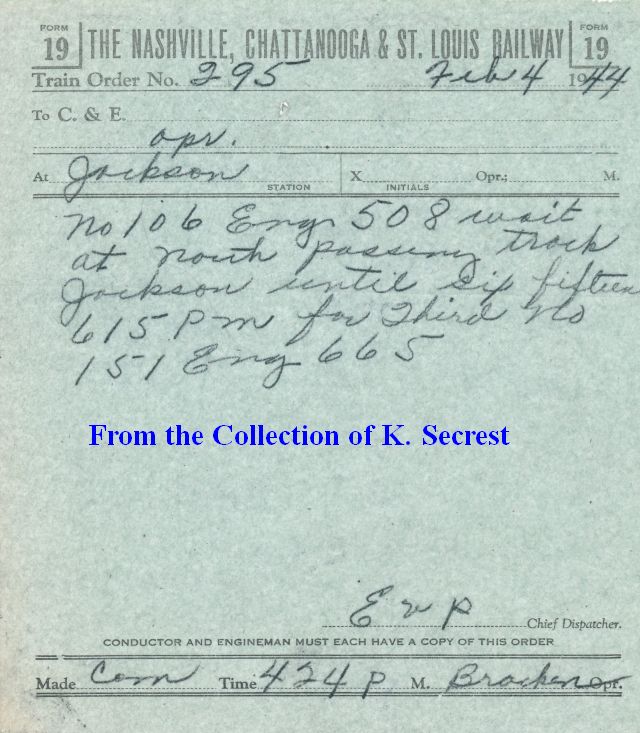 FORM 19 THE NASHVILLE, CHATTANOOGA & ST. LOUIS RAILWAY FORM 19
Train Order No. 295 Feb 4 1944
To C. & E.
opr.
At Jackson STATION X INITIALS Opr.; M.
No 106 Eng 508 wait
at north passing track
Jackson until six fifteen
615 P m for Third No
151 Eng 665
From the Collection of K. Secrest
E v P Chief Dispatcher.
CONDUCTOR AND ENGINEMAN MUST EACH HAVE A COPY OF THIS ORDER
Made Com Time 424 P M. Bracken Opr.